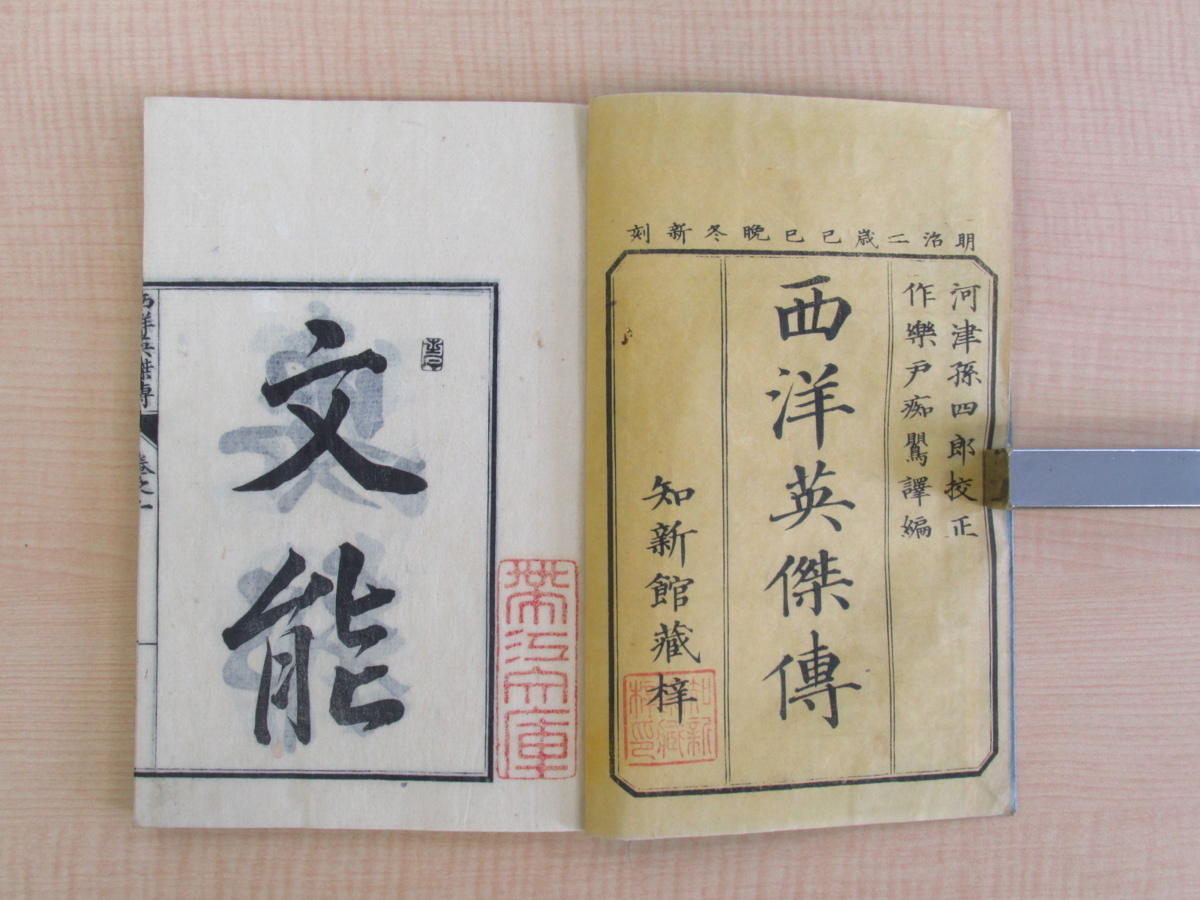 明治二歳己巳晩冬新刻
河津孫四郎校正
作樂戸痴鶯譯編
西洋英傑傳
知新館藏梓
文能
西洋英傑傳 卷之一